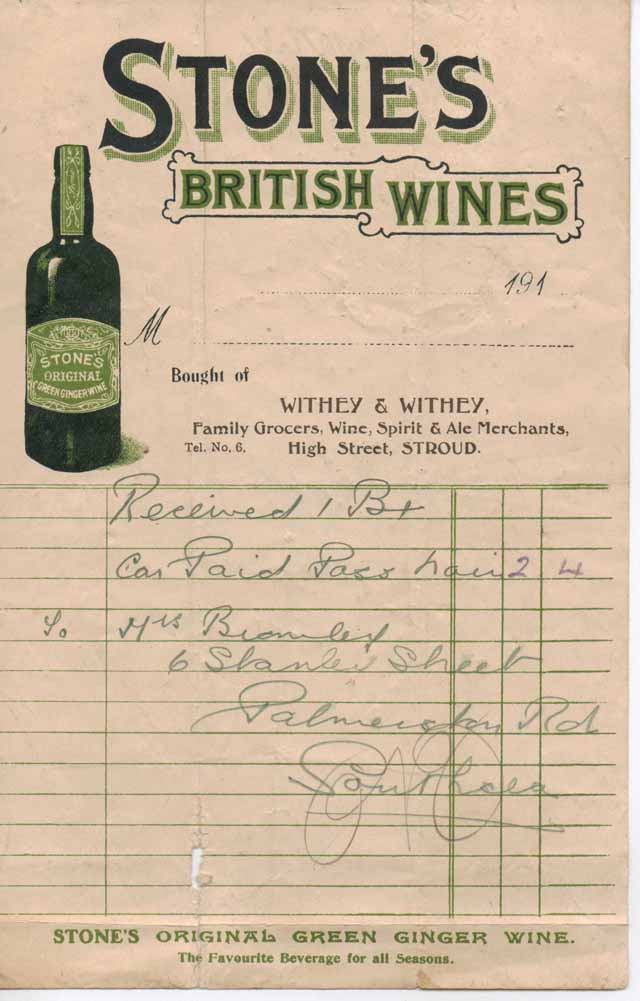 STONE'S
BRITISH WINES
191
M
STONE'S
ORIGINAL
GREEN GINGER WINE
Bought of
WITHEY & WITHEY,
Family Grocers, Wine, Spirit & Ale Merchants,
Tel. No. 6. High Street, STROUD.
Received 1 Bx
Car Paid Pass 2 4
To Mrs Bromley
6 Stanley Street
Palmerston Rd
Southsea
STONE'S ORIGINAL GREEN GINGER WINE.
The Favourite Beverage for all Seasons.